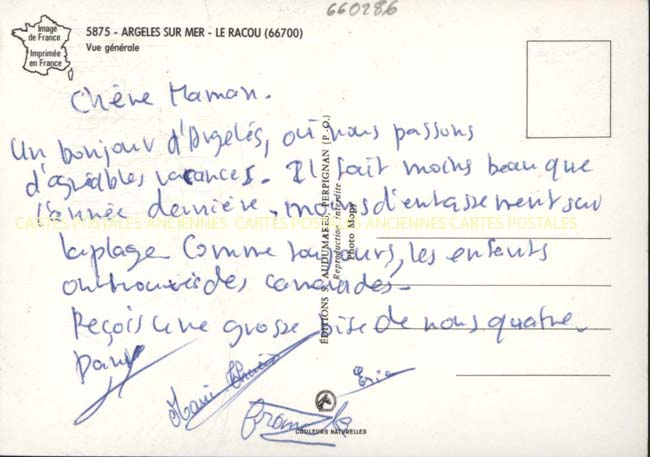 660286
Image
de France
Imprimée
en France
5875 - ARGELES SUR MER - LE RACOU (66700)
Vue générale
Chère Maman.
Un bonjour d'Argelés, où nous passons
d'agréables vacances. Il fait moins beau que
l'année dernière, moins d'entassement sur
la plage. Comme toujours, les enfants
ont trouvé des camarades.
Reçois une grosse bise de nous quatre
CARTES POSTALES ANCIENNES CARTES POSTALES ANCIENNES CARTES POSTALES
ÉDITIONS S. AUDUMARES, PERPIGNAN (P.O.)
Reproduction interdite
Photo Mopy
Eric
COULEURS NATURELLES